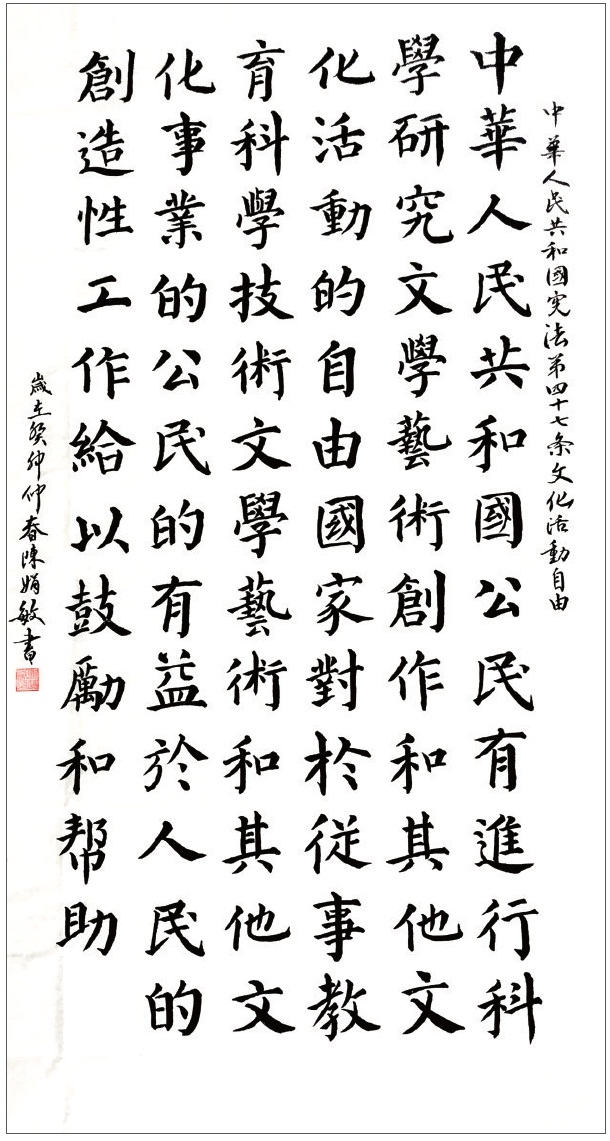 中華人民共和國宪法第四十七条文化活動自由
中華人民共和國公民有進行科
學研究文學藝術創作和其他文
化活動的自由國家對於従事教
育科學技術文學藝術和其他文
化事業的公民的有益於人民的
創造性工作給以鼓勵和帮助
歲在癸卯仲春陳娟敏書